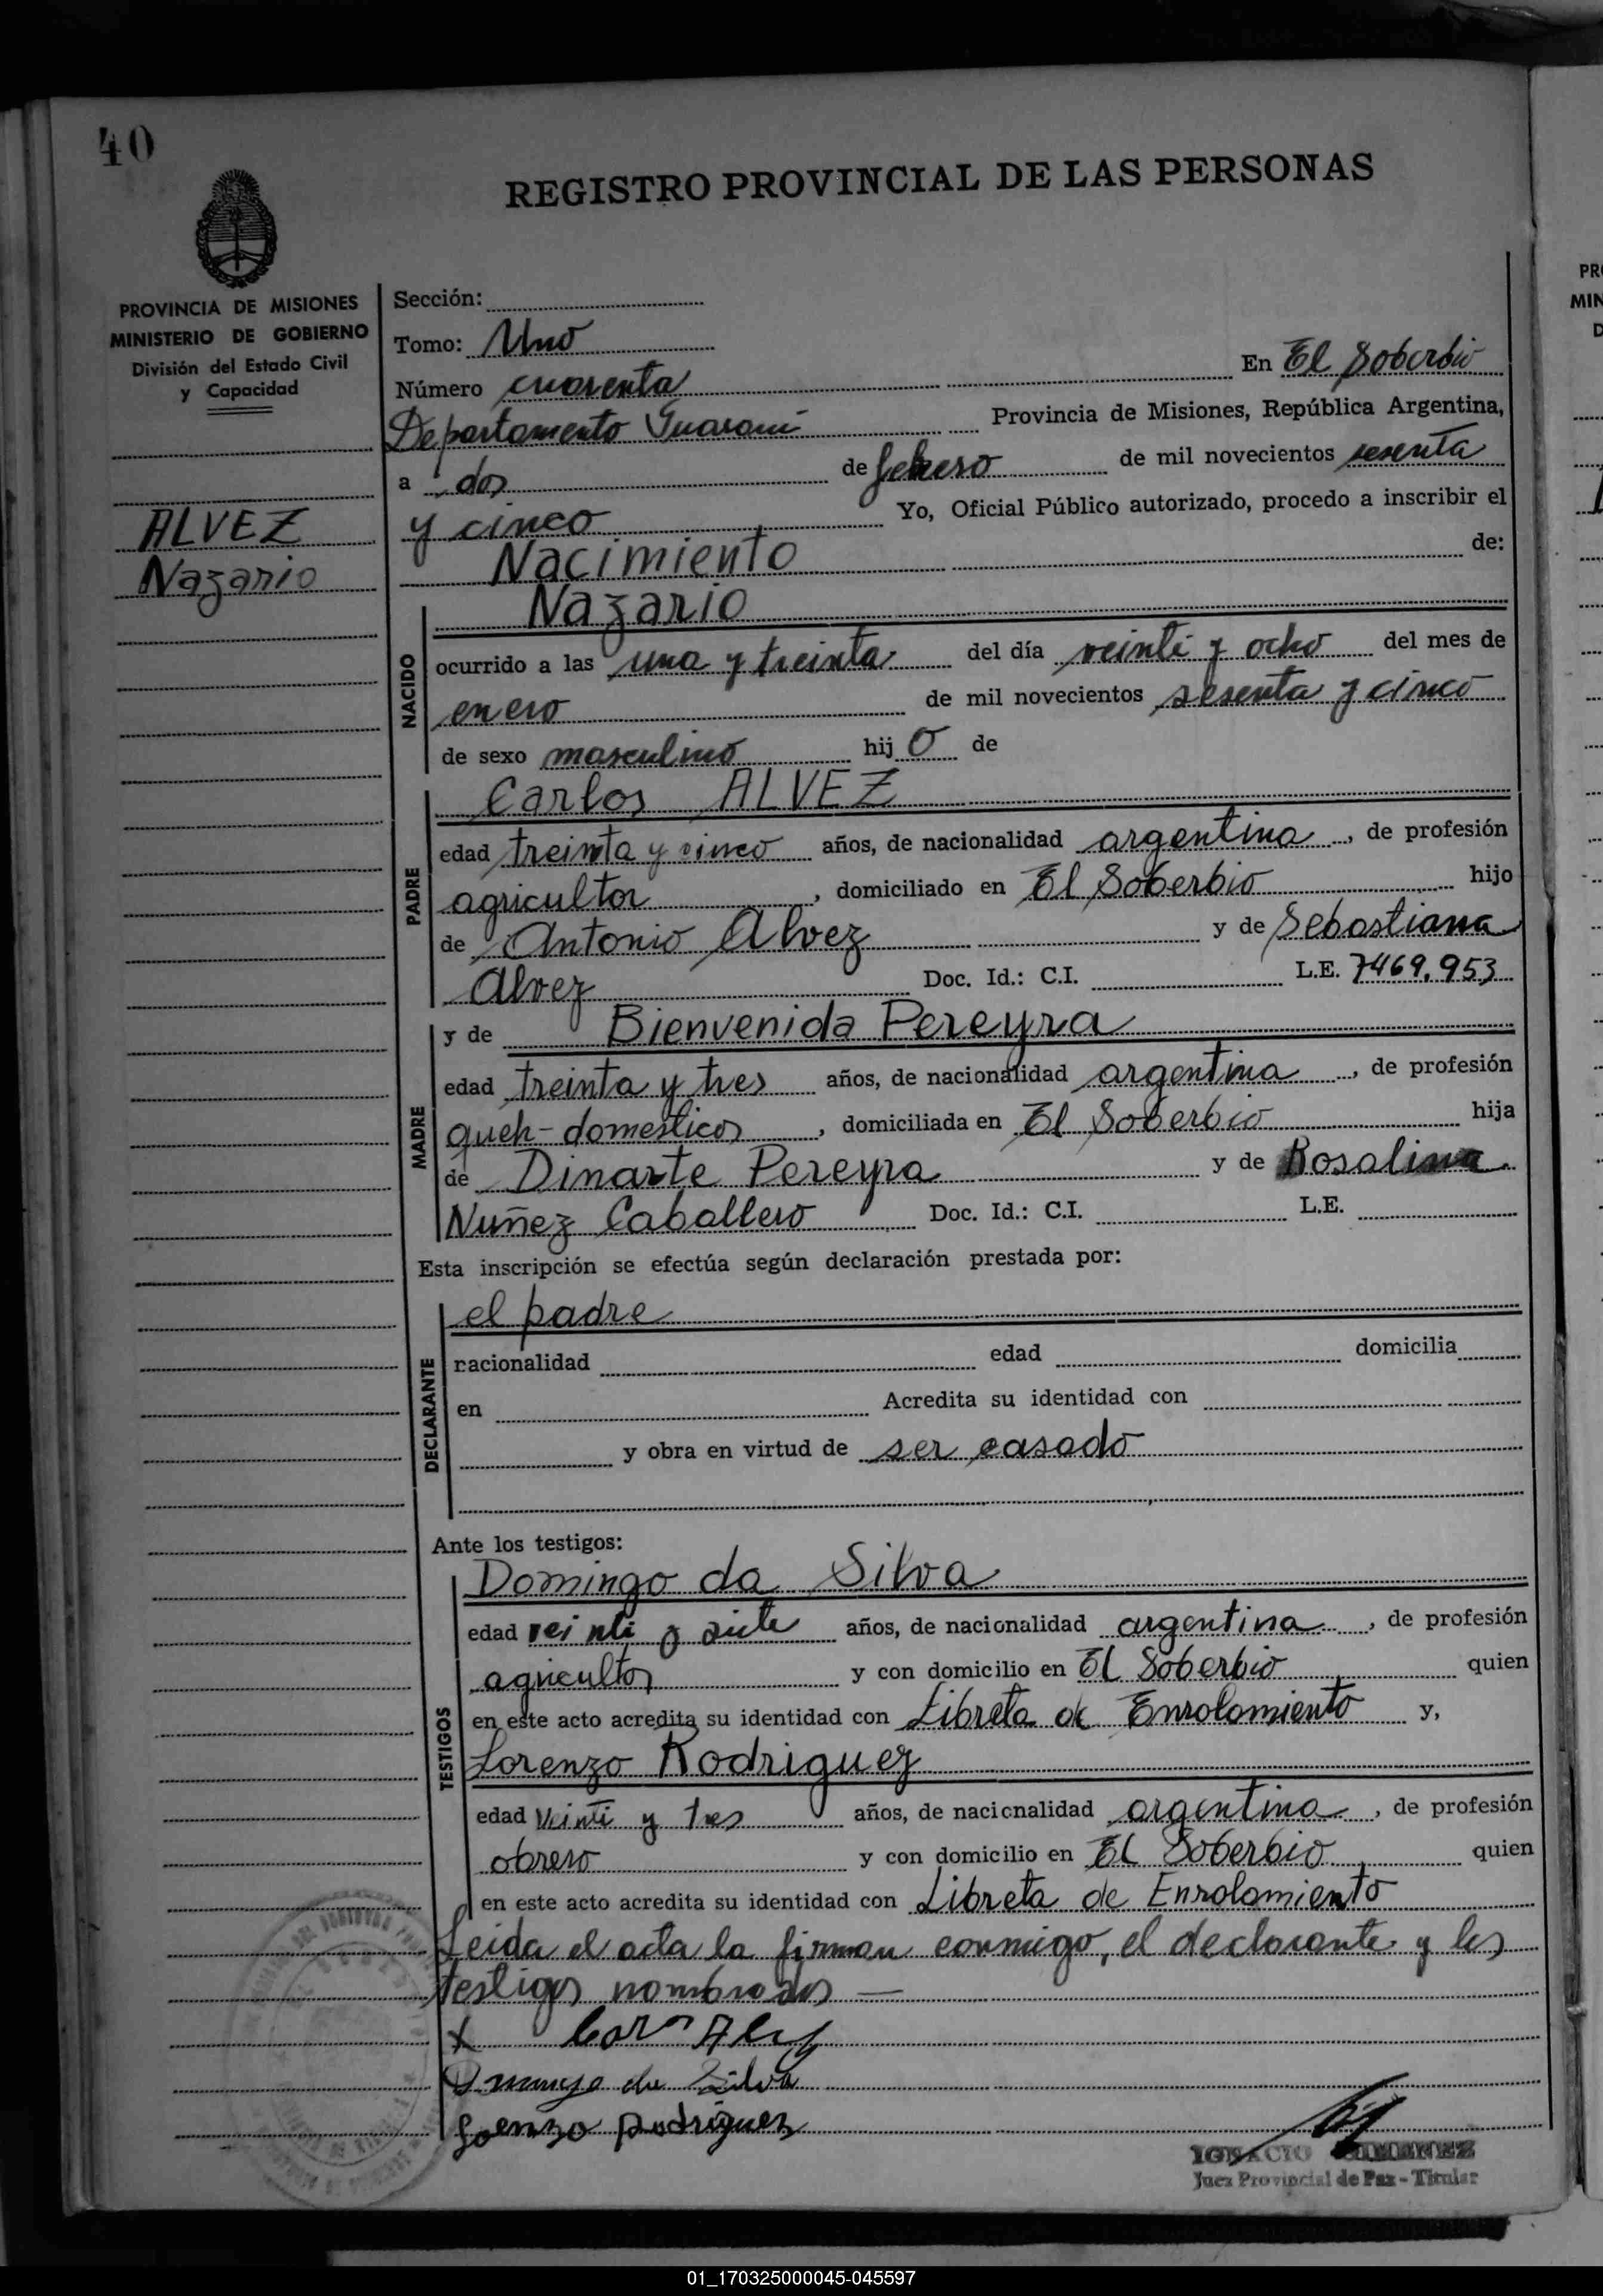 40
REGISTRO PROVINCIAL DE LAS PERSONAS
PROVINCIA DE MISIONES
MINISTERIO DE GOBIERNO
División del Estado Civil
y Capacidad
ALVEZ
Nazario
Sección:
Tomo: Uno
Número cuarenta En El Soberbio
Departamento Guaraní Provincia de Misiones, República Argentina,
a dos de febrero de mil novecientos sesenta
y cinco Yo, Oficial Público autorizado, procedo a inscribir el
Nacimiento de:
Nazario
NACIDO
ocurrido a las una y treinta del día veinti y ocho del mes de
enero de mil novecientos sesenta y cinco
de sexo masculino hijo de
Carlos ALVEZ
PADRE
edad treinta y cinco años, de nacionalidad argentina, de profesión
agricultor, domiciliado en El Soberbio hijo
de Antonio Alvez y de Sebastiana
Alvez Doc. Id.: C.I. L.E. 7469.953
y de Bienvenida Pereyra
MADRE
edad treinta y tres años, de nacionalidad argentina, de profesión
queh-domesticos, domiciliada en El Soberbio hija
de Dinarte Pereyra y de Rosalina
Nuñez Caballero Doc. Id.: C.I. L.E.
Esta inscripción se efectúa según declaración prestada por:
el padre
DECLARANTE
racionalidad edad domicilia
en Acredita su identidad con
y obra en virtud de ser casado
Ante los testigos:
Domingo da Silva
TESTIGOS
edad veinti y siete años, de nacionalidad argentina, de profesión
agricultor y con domicilio en El Soberbio quien
en este acto acredita su identidad con Libreta de Enrolamiento y,
Lorenzo Rodriguez
edad veinti y tres años, de nacionalidad argentina, de profesión
obrero y con domicilio en El Soberbio quien
en este acto acredita su identidad con Libreta de Enrolamiento
Leida el acta la firman conmigo, el declarante y los
testigos nombrados —
x
da Silva
Lorenzo Rodriguez
IGNACIO GIMENEZ
Juez Provincial de Paz - Titular
PR
MIN
D
01_170325000045-045597